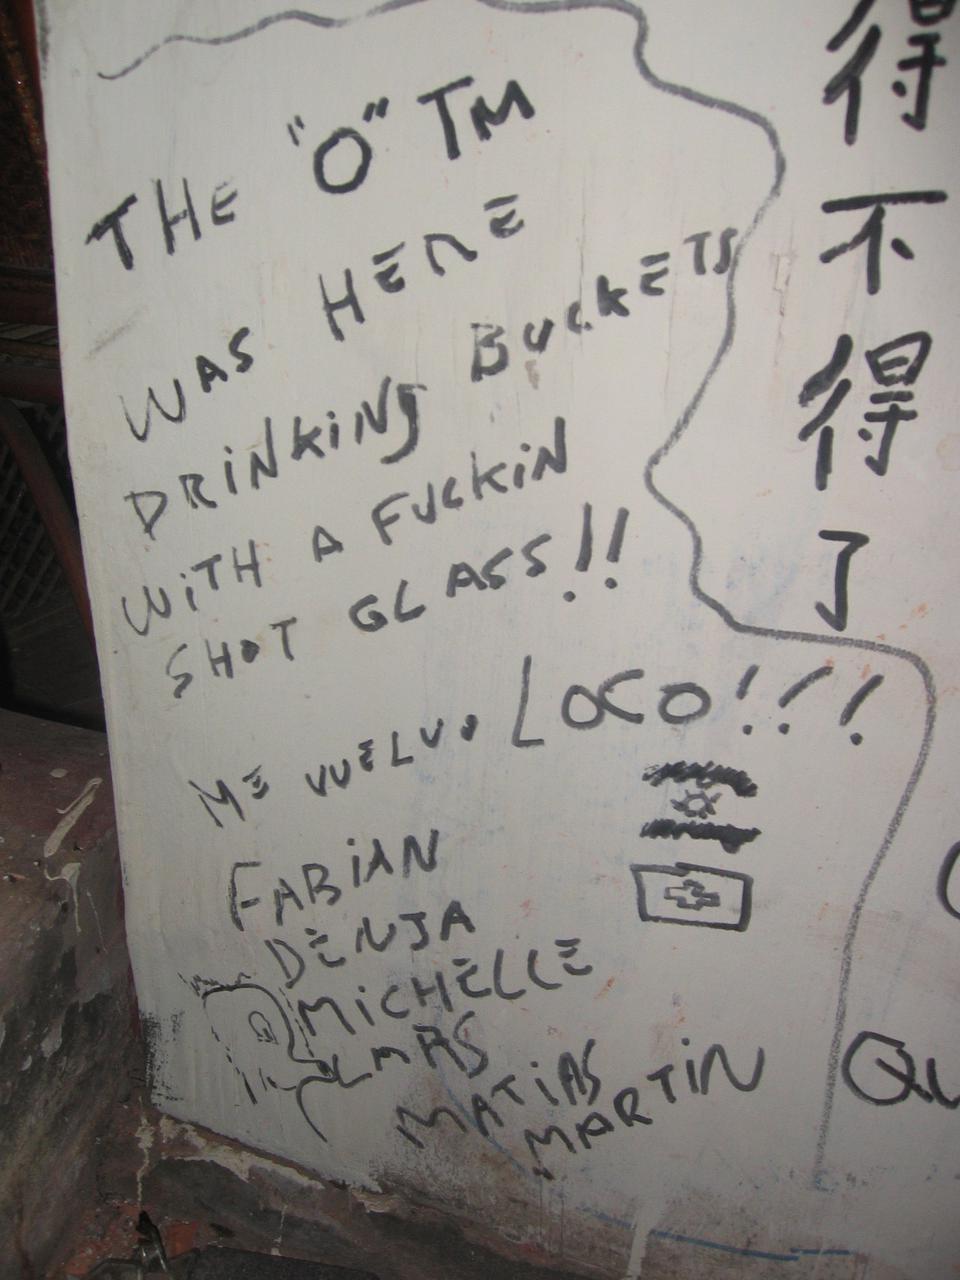 THE "O" TM
WAS HERE
DRINKING BUCKETS
WITH A FUCKIN
SHOT GLASS!!
ME VUELVO LOCO!!!
FABIAN
DENJA
MICHELLE
MATIAS
MARTIN
得
不
得
了
QU